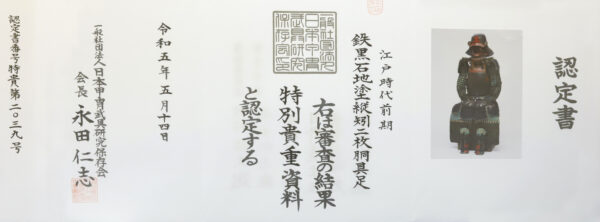 認定書
江戸時代前期
鉄黒石地塗縦矧二枚胴具足
右は審査の結果
特別貴重資料
と認定する
令和五年五月十四日
一般社団法人日本甲冑武具研究保存会
会長 永田仁志
認定書番号特貴第二〇三九号